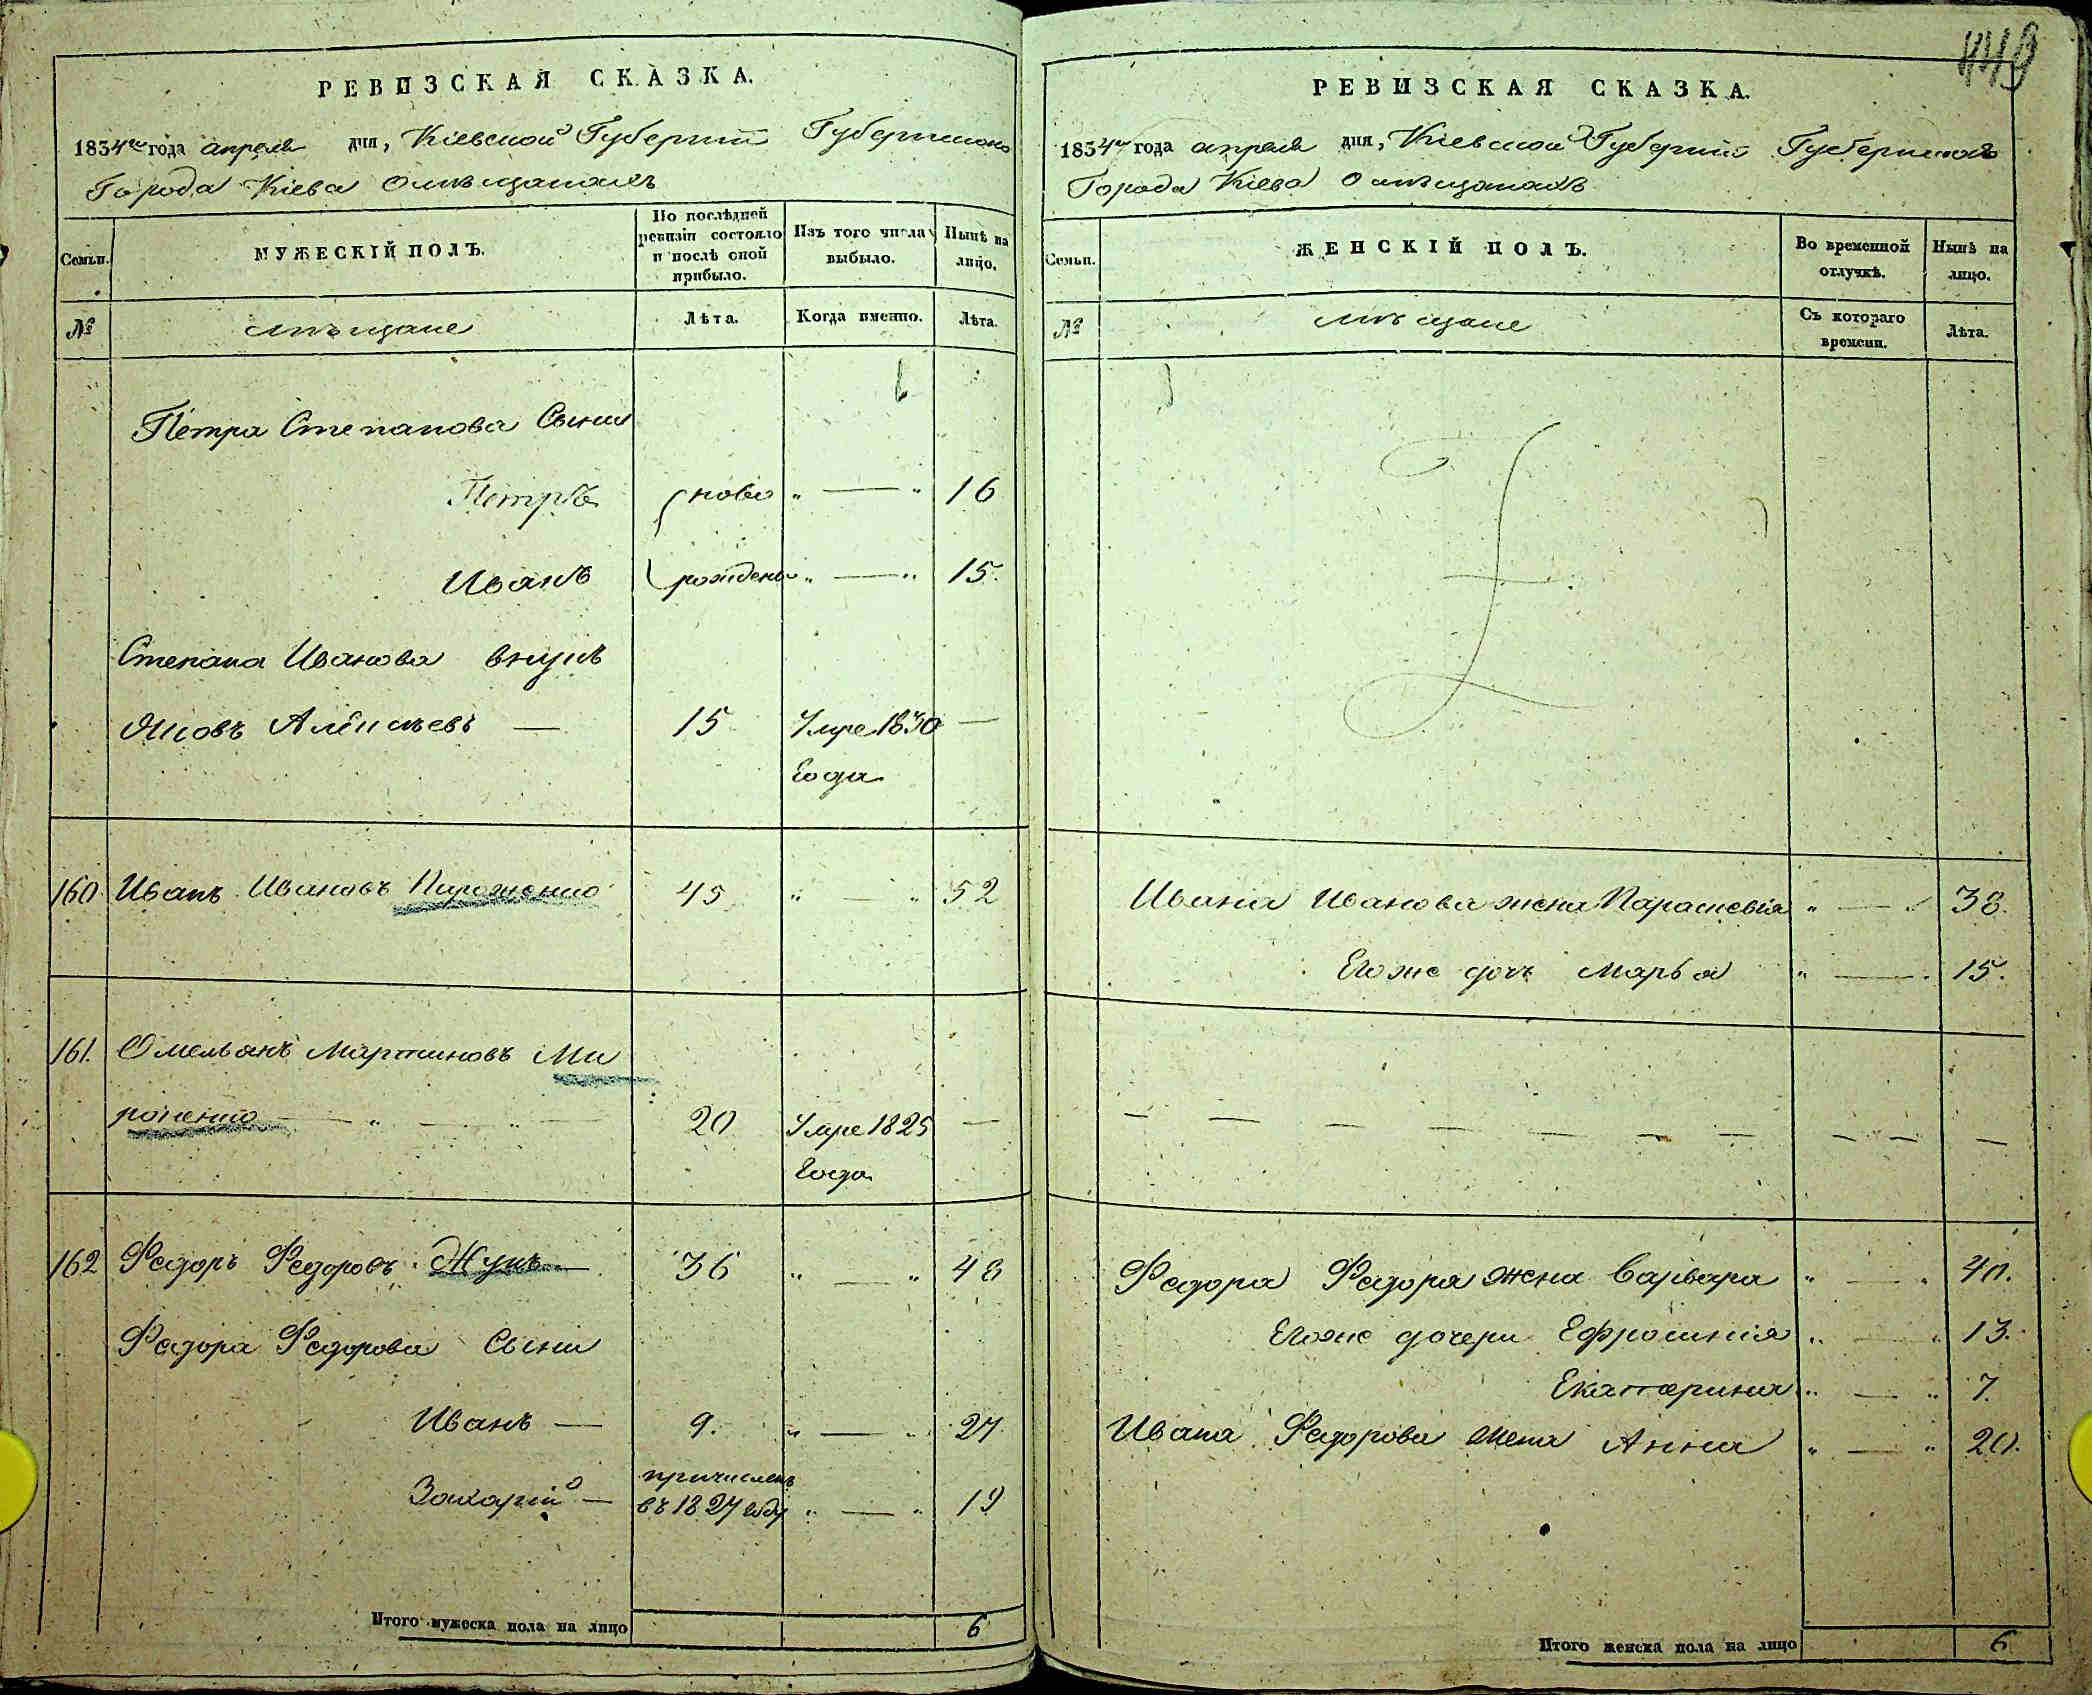 РЕВИЗСКАЯ СКАЗКА.
1834го года апреля дня, Кіевской Губерніи Губернскаго
Города Кіева о мѣщанахъ
Семьи.
МУЖЕСКІЙ ПОЛЪ.
По послѣдней ревизіи состояло и послѣ оной прибыло.
Изъ того числа выбыло.
Нынѣ на лицо.
№
мѣщане
Лѣта.
Когда именно.
Лѣта.
Петра Степанова Сыни
Петръ ново „ — „ 16
Иванъ рожденъ „ — „ 15.
Степана Иванова внукъ
Яковъ Алексѣевъ — 15 Умре 1830 —
года
160. Иванъ Ивановъ Пироженко 45 „ — „ 52
161. Омельянъ Мартиновъ Ми
роненко — „ — „ 20 Умре 1825 —
года
162 Федоръ Федоровъ Жукъ — 36 „ — „ 48
Федора Федорова Сыни
Иванъ — 9. „ — „ 27
Захарій — причисленъ
въ 1827 году „ — „ 19
Итого мужеска пола на лицо 6
449
РЕВИЗСКАЯ СКАЗКА.
1834го года апреля дня, Кіевской Губерніи Губернскаго
Города Кіева о мѣщанахъ
Семьи.
ЖЕНСКІЙ ПОЛЪ.
Во временной отлучкѣ.
Нынѣ на лицо.
№
мѣщане
Съ котораго времени.
Лѣта.
Ивана Иванова жена Параскевія „ — „ 38.
Его же дочь Марья „ — „ 15.
— — — — — — — — — —
Федора Федора жена Варвара „ — „ 40.
Его же дочери Ефросинія „ — „ 13.
Екатерина „ — „ 7.
Ивана Федорова жена Анна „ — „ 20.
Итого женска пола на лицо 6